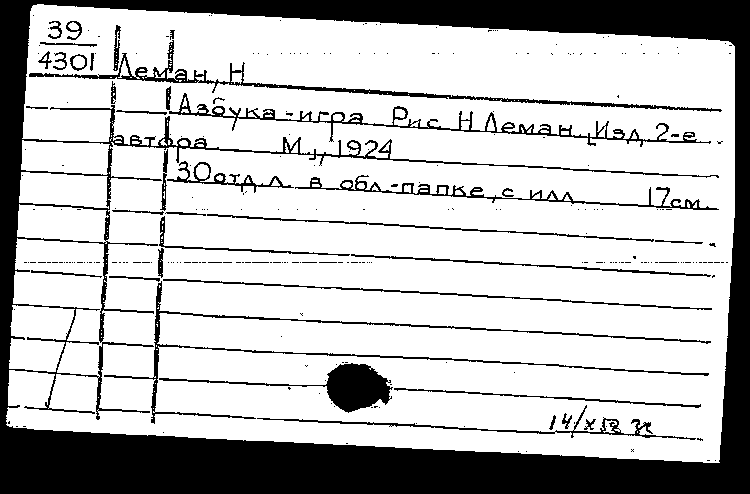 39
4301
Леман, Н
Азбука-игра Рис. Н Леман [Изд. 2-е
автора М., 1924
30 отд. л. в обл.-папке, с илл 17 см.
14/X 52